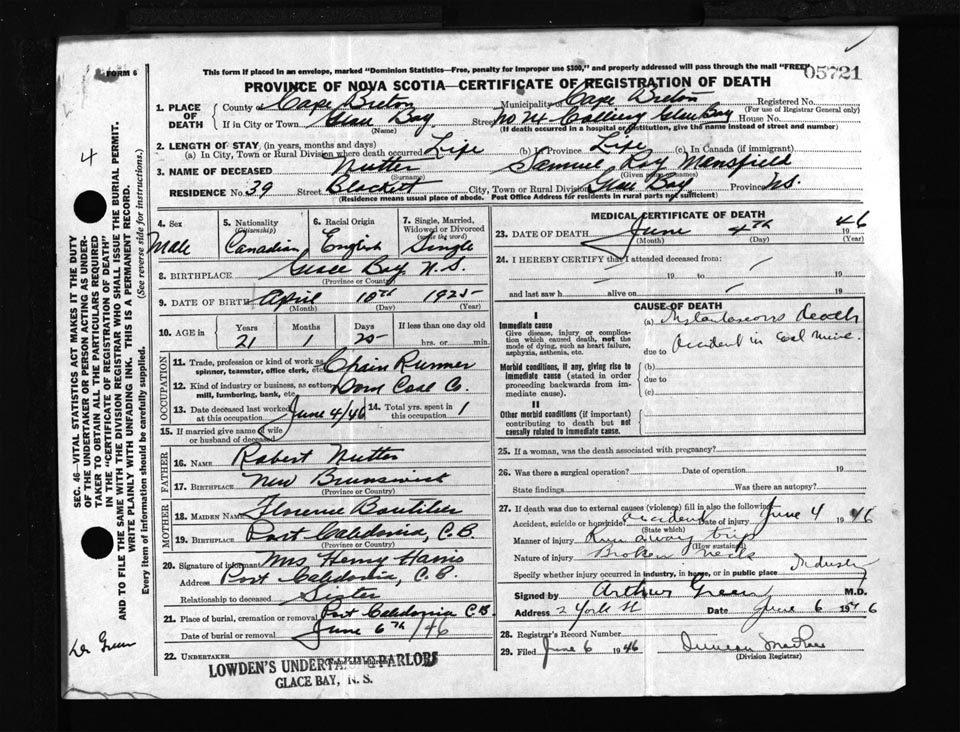 FORM 6
This form if placed in an envelope, marked "Dominion Statistics—Free, penalty for improper use $300," and properly addressed will pass through the mail "FREE"
05721
PROVINCE OF NOVA SCOTIA—CERTIFICATE OF REGISTRATION OF DEATH
1. PLACE OF DEATH County of Cape Breton Municipality of Cape Breton Registered No.
(For use of Registrar General only)
If in City or Town Glace Bay Street No 24 Colliery Glace Bay House No.
(Name) (If death occurred in a hospital or institution, give the name instead of street and number)
2. LENGTH OF STAY (in years, months and days)
(a) In City, Town or Rural Division where death occurred Life (b) In Province Life (c) In Canada (if immigrant)
3. NAME OF DECEASED Nutter Samuel Roy Mansfield
(Surname) (Given names)
RESIDENCE No. 39 Street Blackett City, Town or Rural Division Glace Bay Province N.S.
(Residence means usual place of abode. Post Office Address for residents in rural parts not sufficient)
4. Sex Male
5. Nationality (Citizenship) Canadian
6. Racial Origin English
7. Single, Married, Widowed or Divorced (write the word) Single
8. BIRTHPLACE Glace Bay, N.S.
(Province or Country)
9. DATE OF BIRTH April 10th 1925
(Month) (Day) (Year)
10. AGE in Years Months Days If less than one day old
21 1 25 hrs. or min.
OCCUPATION
11. Trade, profession or kind of work as spinner, teamster, office clerk, etc. Chain Runner
12. Kind of industry or business, as cotton mill, lumbering, bank, etc. Dom Coal Co.
13. Date deceased last worked at this occupation June 4/46 14. Total yrs. spent in this occupation 1
15. If married give name of wife or husband of deceased
FATHER
16. NAME Robert Nutter
17. BIRTHPLACE New Brunswick
(Province or Country)
MOTHER
18. MAIDEN NAME Florence Boutilier
19. BIRTHPLACE Port Caledonia, C.B.
(Province or Country)
20. Signature of informant Mrs Henry Harris
Address Port Caledonia, C.B.
Relationship to deceased Sister
21. Place of burial, cremation or removal Port Caledonia C.B.
Date of burial or removal June 6th /46
22. UNDERTAKER
(Name and address)
LOWDEN'S UNDERTAKING PARLORS
GLACE BAY, N. S.
MEDICAL CERTIFICATE OF DEATH
23. DATE OF DEATH June 4th 1946
(Month) (Day) (Year)
24. I HEREBY CERTIFY that I attended deceased from:
19 to 19
and last saw h alive on 19
CAUSE OF DEATH
I
Immediate cause
Give disease, injury or complication which caused death, not the mode of dying, such as heart failure, asphyxia, asthenia, etc.
(a) Instantaneous death
due to Accident in Coal Mine.
Morbid conditions, if any, giving rise to immediate cause (stated in order proceeding backwards from immediate cause).
(b)
due to
(c)
II
Other morbid conditions (if important) contributing to death but not causally related to immediate cause.
25. If a woman, was the death associated with pregnancy?
26. Was there a surgical operation? Date of operation 19
State findings Was there an autopsy?
27. If death was due to external causes (violence) fill in also the following:
Accident, suicide or homicide? accident Date of injury June 4 1946
(State which)
Manner of injury Run away trip
(How sustained)
Nature of injury Broken neck
Specify whether injury occurred in industry, in home, or in public place Industry
Signed by Arthur Green M.D.
Address 2 York St Date June 6 1946
28. Registrar's Record Number
29. Filed June 6 1946 Duncan MacRae
(Division Registrar)
SEC. 46—VITAL STATISTICS ACT MAKES IT THE DUTY OF THE UNDERTAKER OR PERSON ACTING AS UNDERTAKER TO OBTAIN ALL THE PARTICULARS REQUIRED IN THE "CERTIFICATE OF REGISTRATION OF DEATH" AND TO FILE THE SAME WITH THE DIVISION REGISTRAR WHO SHALL ISSUE THE BURIAL PERMIT.
WRITE PLAINLY WITH UNFADING INK. THIS IS A PERMANENT RECORD.
Every item of information should be carefully supplied. (See reverse side for instructions.)
4
Dr Green